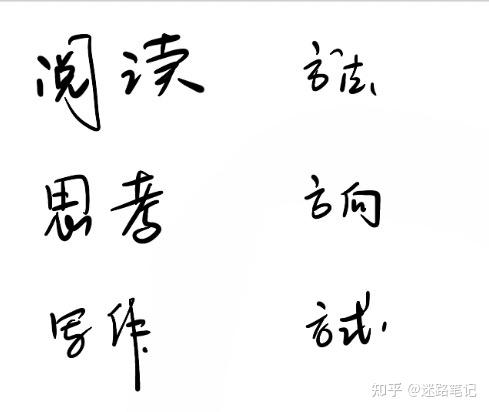 阅读 方法
思考 方向
写作 方式
知乎 @迷路笔记